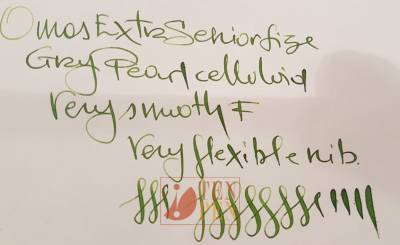 Omas Extra Senior size
Gray Pearl celluloid
Very smooth F
Very flexible nib.